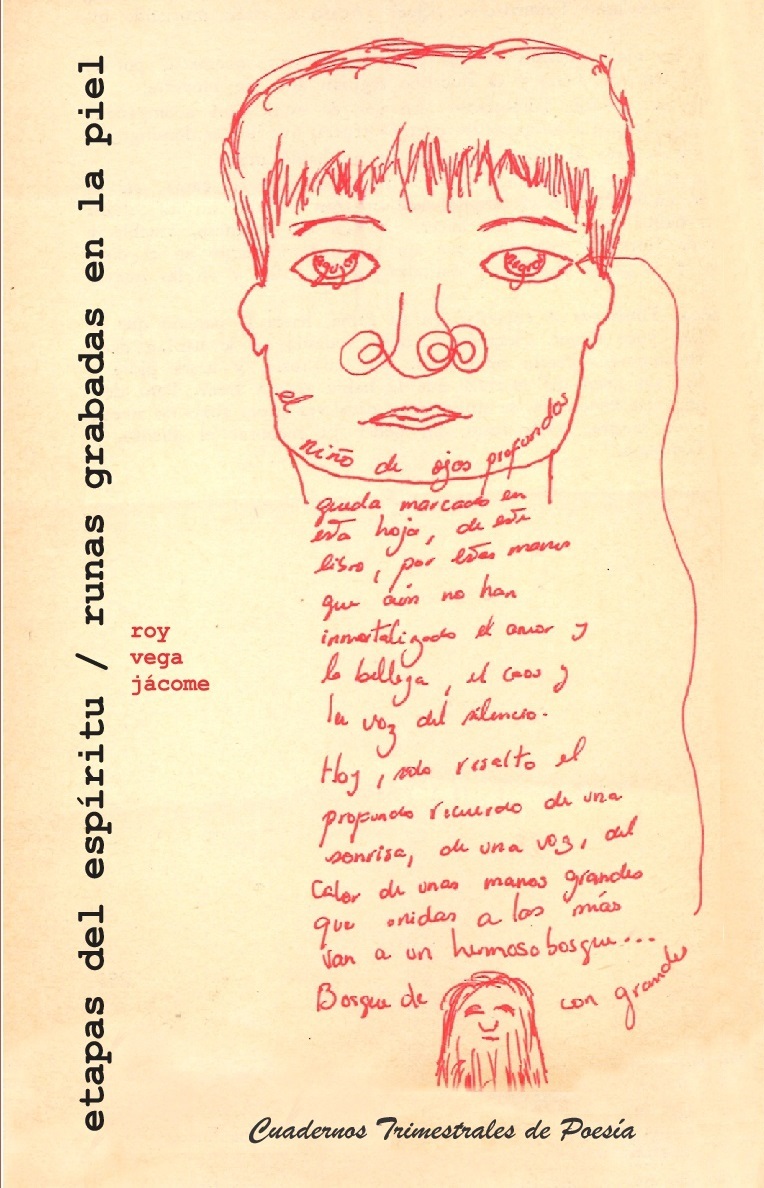 etapas del espíritu / runas grabadas en la piel
roy
vega
jácome
el niño de ojos profundos
queda marcado en
esta hoja, de este
libro, por estas manos
que aún no han
inmortalizado el amor y
la belleza, el caos y
la voz del silencio.
Hoy, solo resalto el
profundo recuerdo de una
sonrisa, de una voz, del
Calor de unas manos grandes
que unidas a las mías
van a un hermoso bosque...
Bosque de con grande
Cuadernos Trimestrales de Poesía